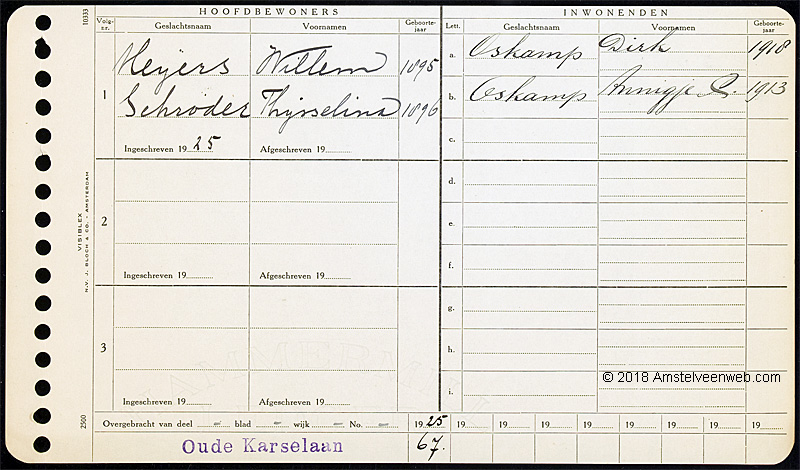 HOOFDBEWONERS
INWONENDEN
Volg-nr. Geslachtsnaam Voornamen Geboorte-jaar Lett. Geslachtsnaam Voornamen Geboorte-jaar
1 Meÿers Willem 1895 a. Oskamp Dirk 1918
Schröder Thijsselina 1896 b. Oskamp Annigje R. 1913
c.
Ingeschreven 19 25 Afgeschreven 19
d.
2 e.
f.
Ingeschreven 19 Afgeschreven 19
g.
3 h.
i.
Ingeschreven 19 Afgeschreven 19
Overgebracht van deel – blad – wijk – No. – 19 25 19 19 19 19 19 19 19 19
Oude Karselaan 67.
10333
VISIBLEX
N.V. J. BLOCH & CO. - AMSTERDAM
2500
© 2018 Amstelveenweb.com